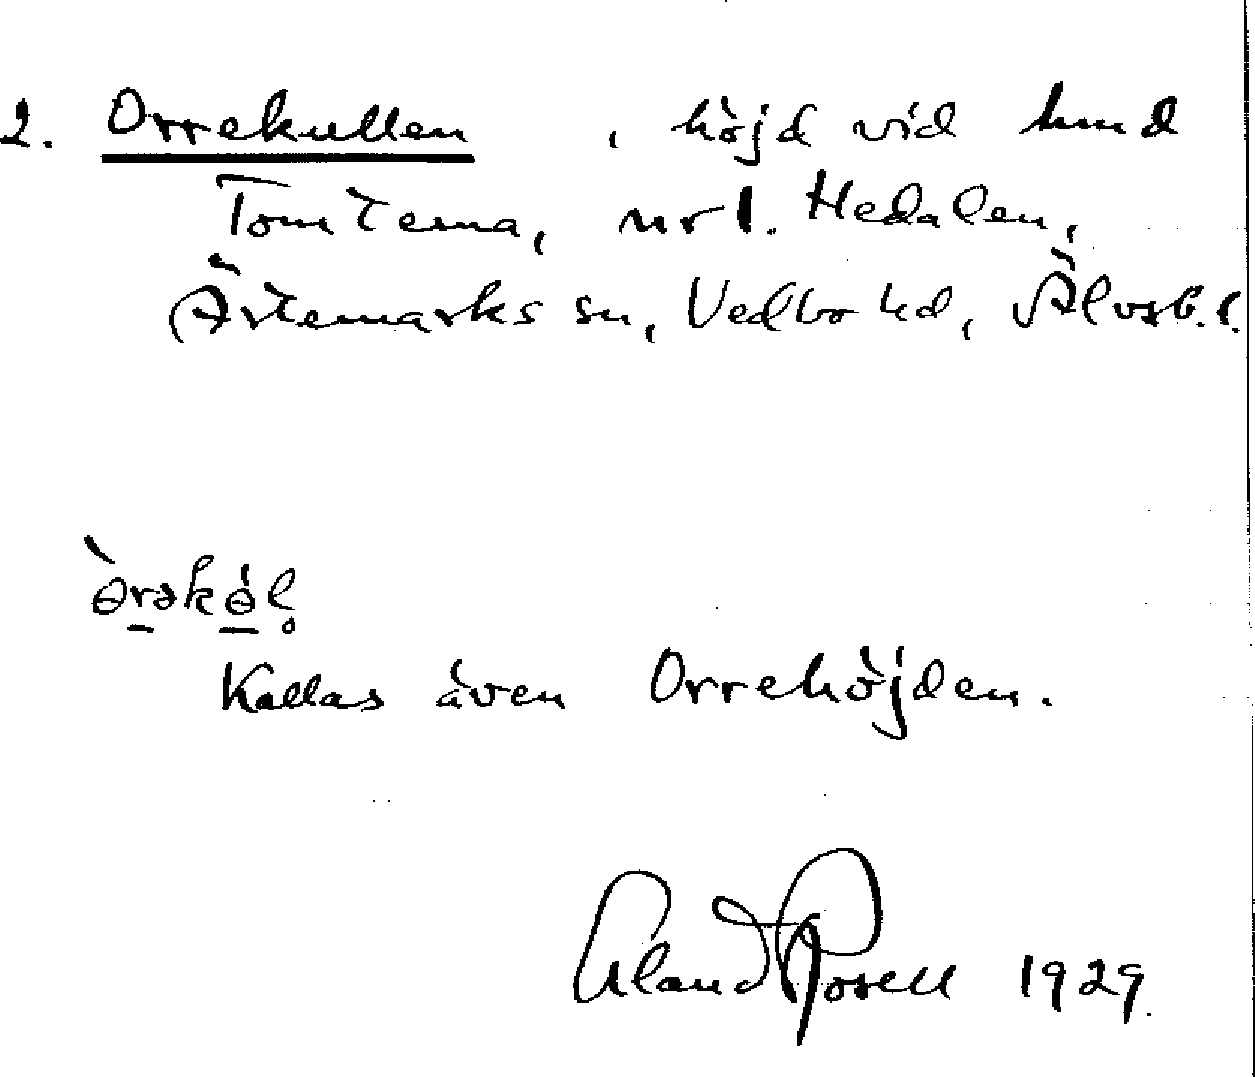 2. Orrekullen, höjd vid hmd
Tomterna, nrl. Hedalen,
Ärtemarks sn, Vedbo hd, Älvsb. l.
Kallas även Orrehöjden.
Erland Rosell 1929.